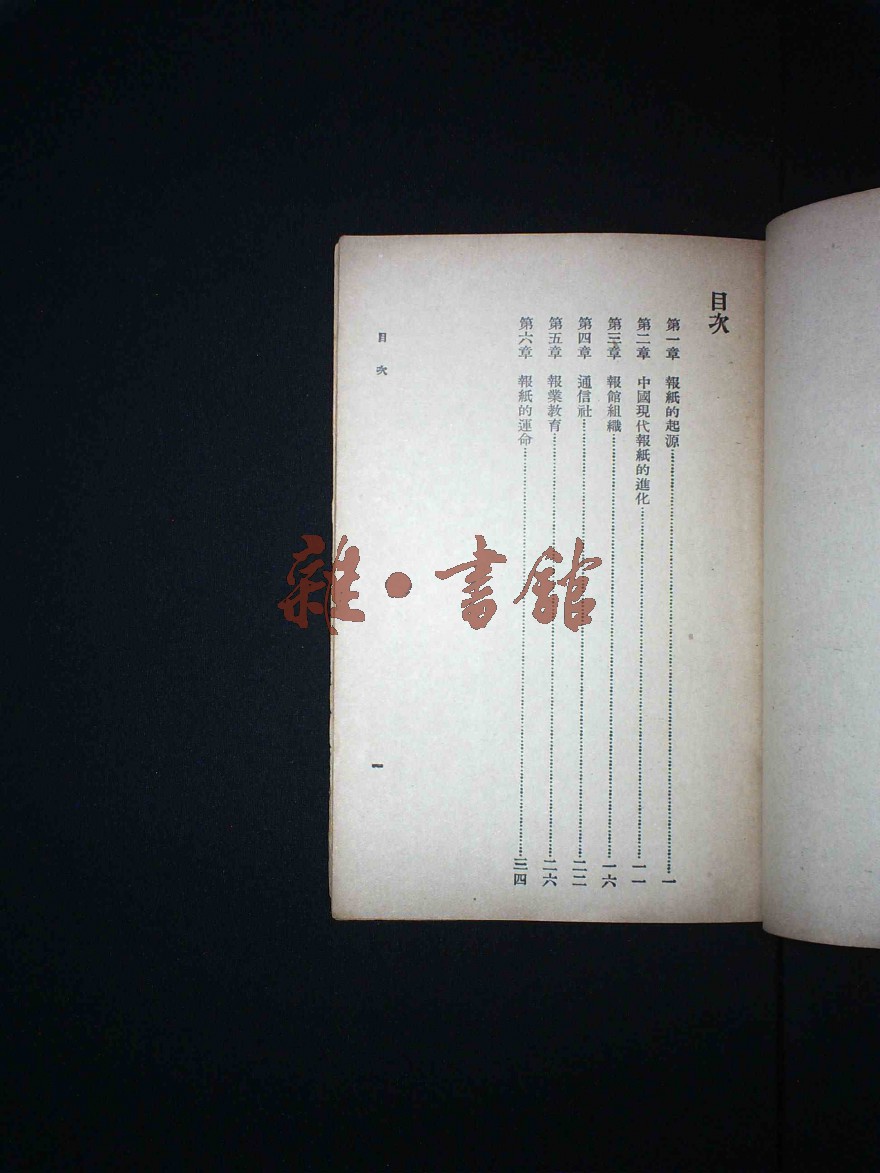 目次
第一章 報紙的起源……一
第二章 中國現代報紙的進化……一一
第三章 報館組織……一六
第四章 通信社……二二
第五章 報業教育……二六
第六章 報紙的運命……三四
目次
一
雜·書館